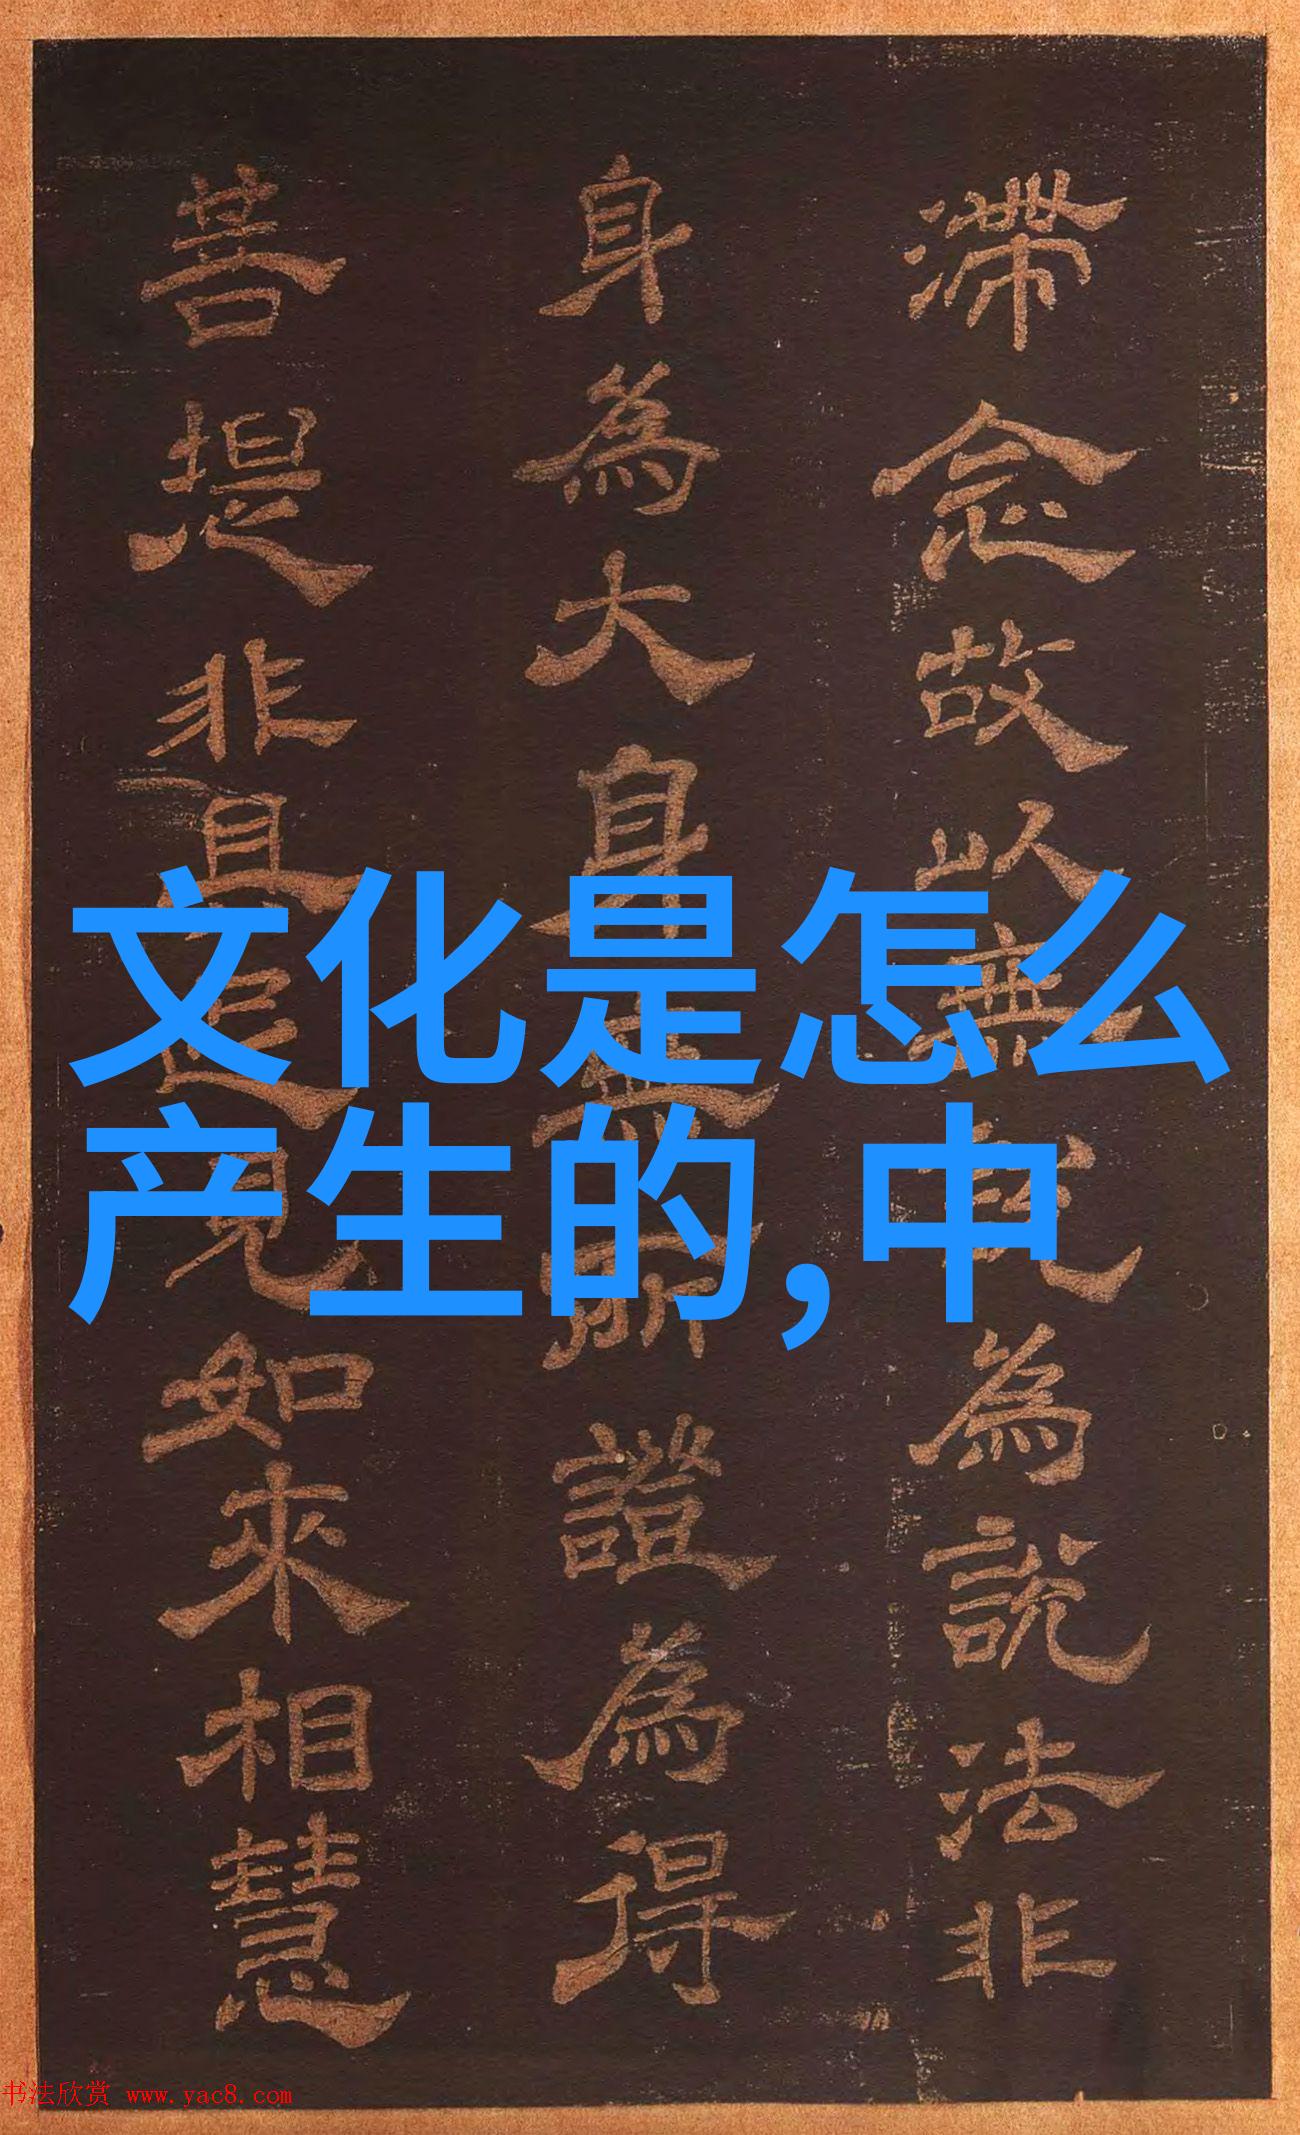 滯念故以無為說法非
身為大身無所證為得
菩提非具足見如來相慧
文化是怎么
产生的,中
书法欣赏 www.yac8.com